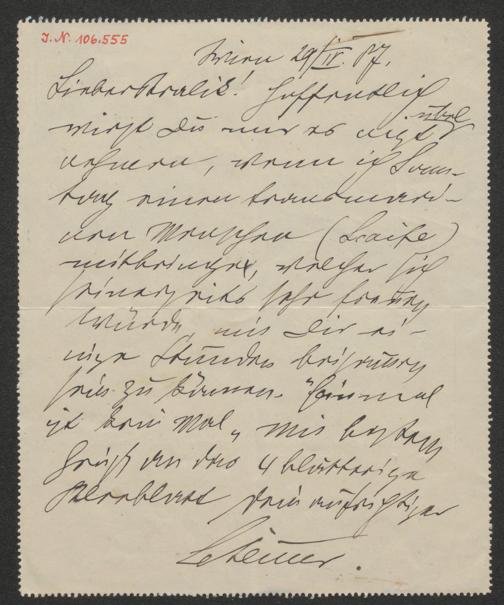 J.N. 106.555
Wien 29/IV. 87.
Lieber Kralik! Hoffentlich
wirst Du mir es nicht übel
nehmen, wenn ich Sams-
tag einen transmari-
nen Menschen
mitbringe, welcher sich
seinerseits sehr freuen
würde, mit Dir ei-
nige Stunden beisammen
sein zu können. "Einmal
ist kein Mal" mit bestem
Gruß an das 4 blätterige
Kleeblatt Dein aufrichtiger